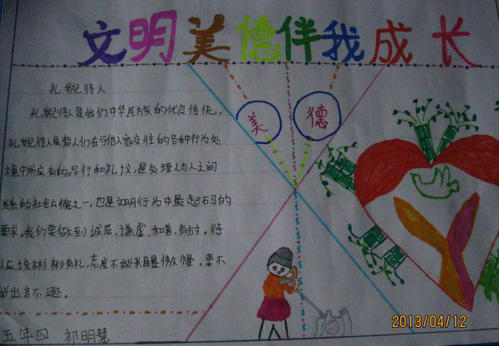 文明美德伴我成长
礼貌待人
礼貌待人是我们中华民族的优良传统。
礼貌待人是指人们在与他人交往的各种行为处
境中所应有的品行和礼仪,是处理人与人之间
关系的社会公德之一,也是文明行为中最起码的
要求。我们要做到诚居、谦虚、和善、有分。待
人应该彬彬有礼,态度不能
出言不逊。
美 德
五年四 祁明慧
2013/04/12